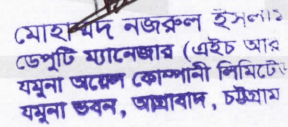 মোহাম্মদ নজরুল ইসলাম
ডেপুটি ম্যানেজার (এইচ আর
যমুনা অয়েল কোম্পানী লিমিটেড
যমুনা ভবন, আগ্রাবাদ, চট্টগ্রাম